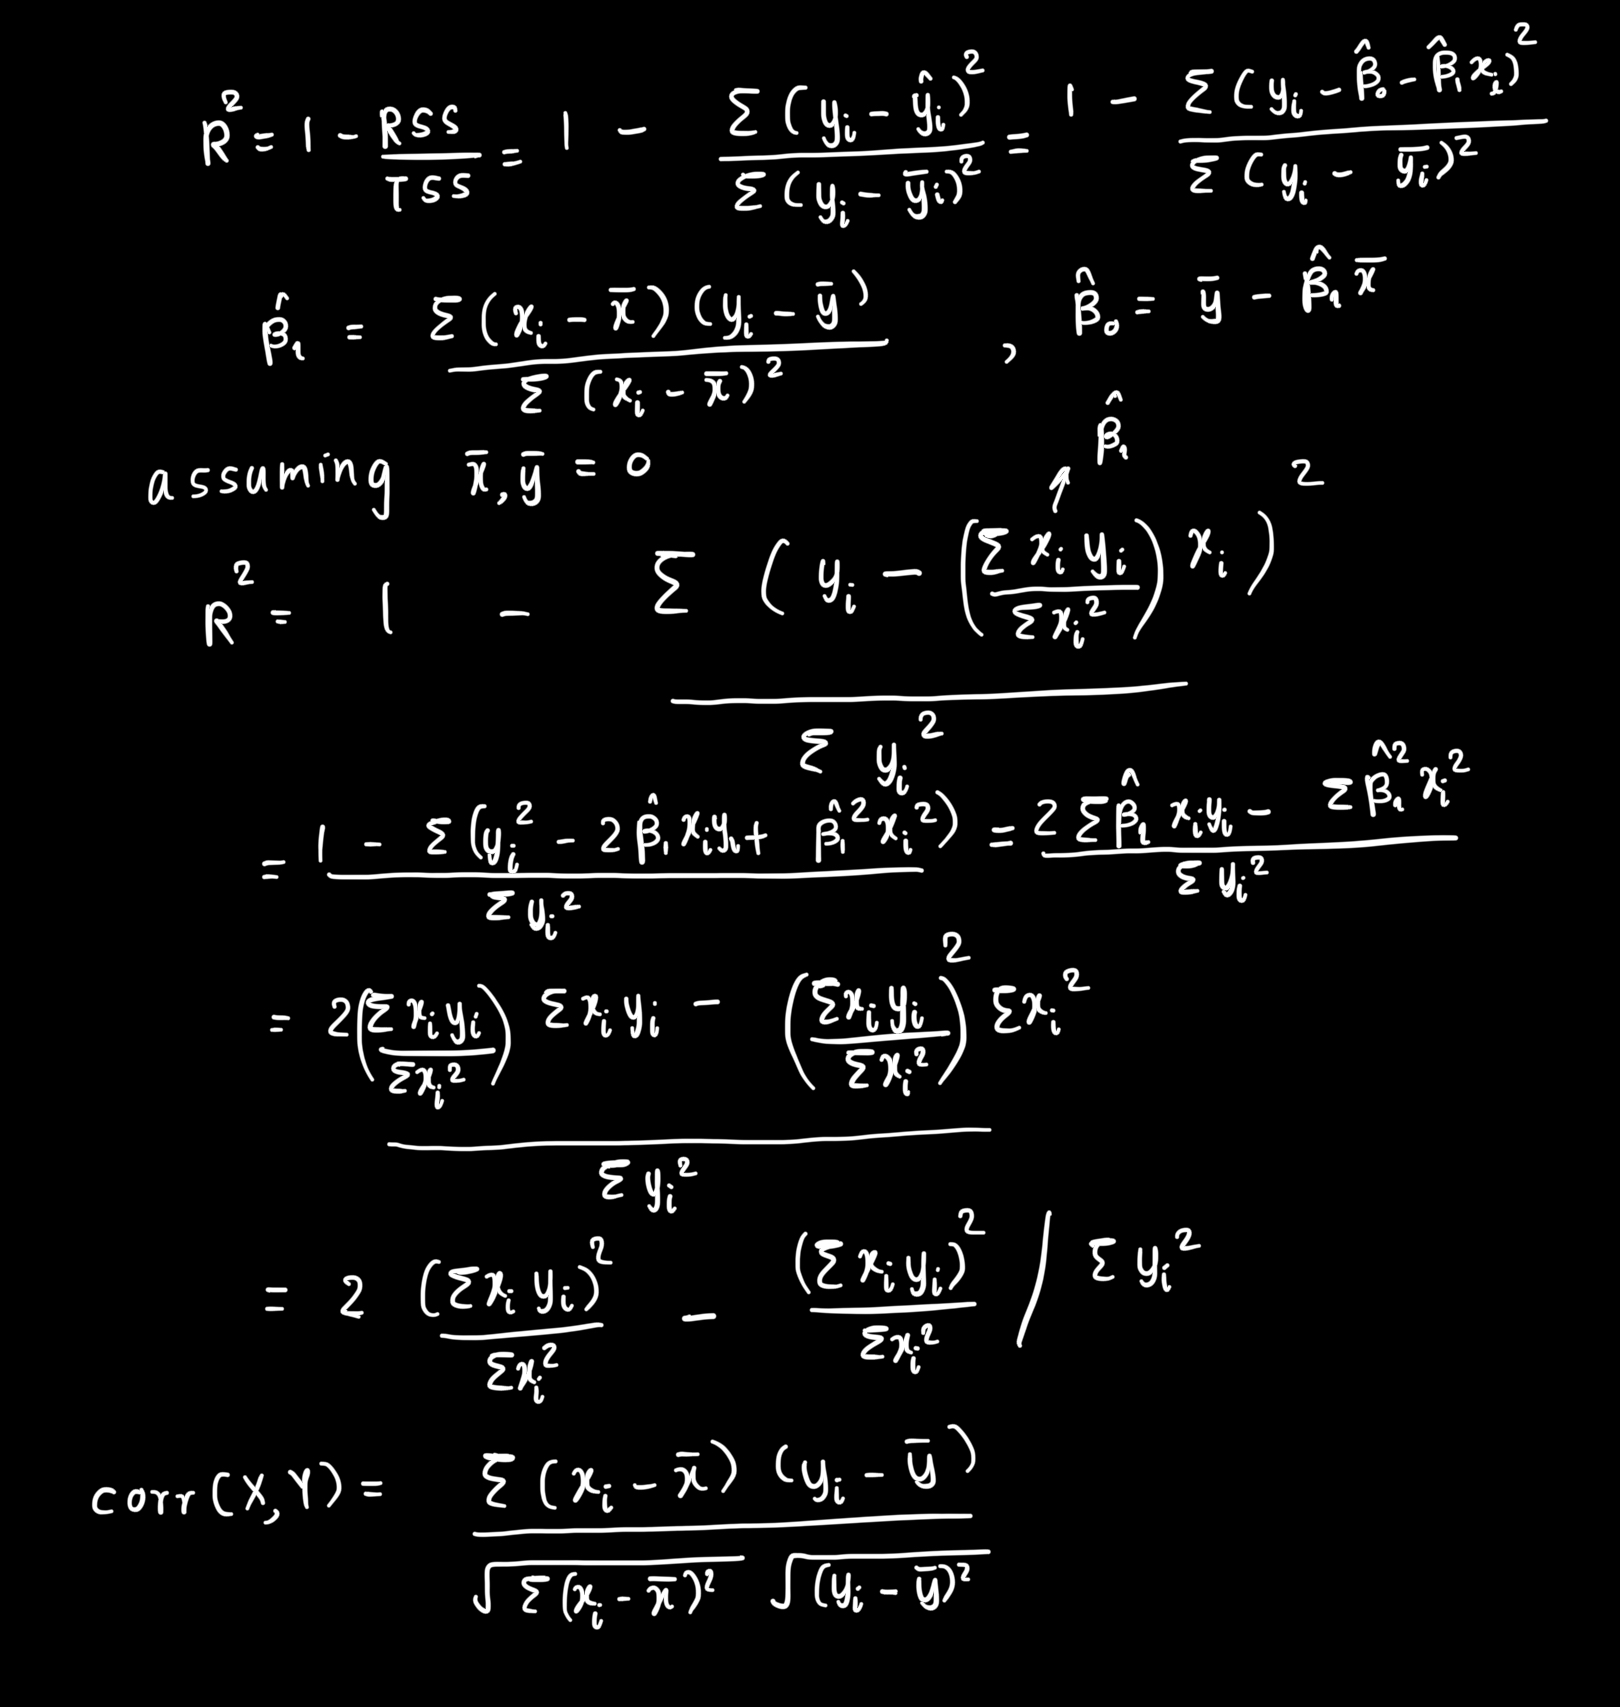 R² = 1 - RSS/TSS = 1 - Σ(yᵢ - ŷᵢ)² / Σ(yᵢ - ȳᵢ)² = 1 - Σ(yᵢ - β̂₀ - β̂₁xᵢ)² / Σ(yᵢ - ȳᵢ)²
β̂₁ = Σ(xᵢ - x̄)(yᵢ - ȳ) / Σ(xᵢ - x̄)² , β̂₀ = ȳ - β̂₁x̄
assuming x̄, ȳ = 0
↑ β̂₁
R² = 1 - Σ(yᵢ - (Σxᵢyᵢ / Σxᵢ²) xᵢ)² / Σyᵢ²
= 1 - Σ(yᵢ² - 2β̂₁xᵢyᵢ + β̂₁²xᵢ²) / Σyᵢ² = 2Σβ̂₁xᵢyᵢ - Σβ̂₁²xᵢ² / Σyᵢ²
= 2(Σxᵢyᵢ / Σxᵢ²) Σxᵢyᵢ - (Σxᵢyᵢ / Σxᵢ²)² Σxᵢ² / Σyᵢ²
= 2 (Σxᵢyᵢ)² / Σxᵢ² - (Σxᵢyᵢ)² / Σxᵢ² / Σyᵢ²
corr(X,Y) = Σ(xᵢ - x̄)(yᵢ - ȳ) / √Σ(xᵢ - x̄)² √(yᵢ - ȳ)²